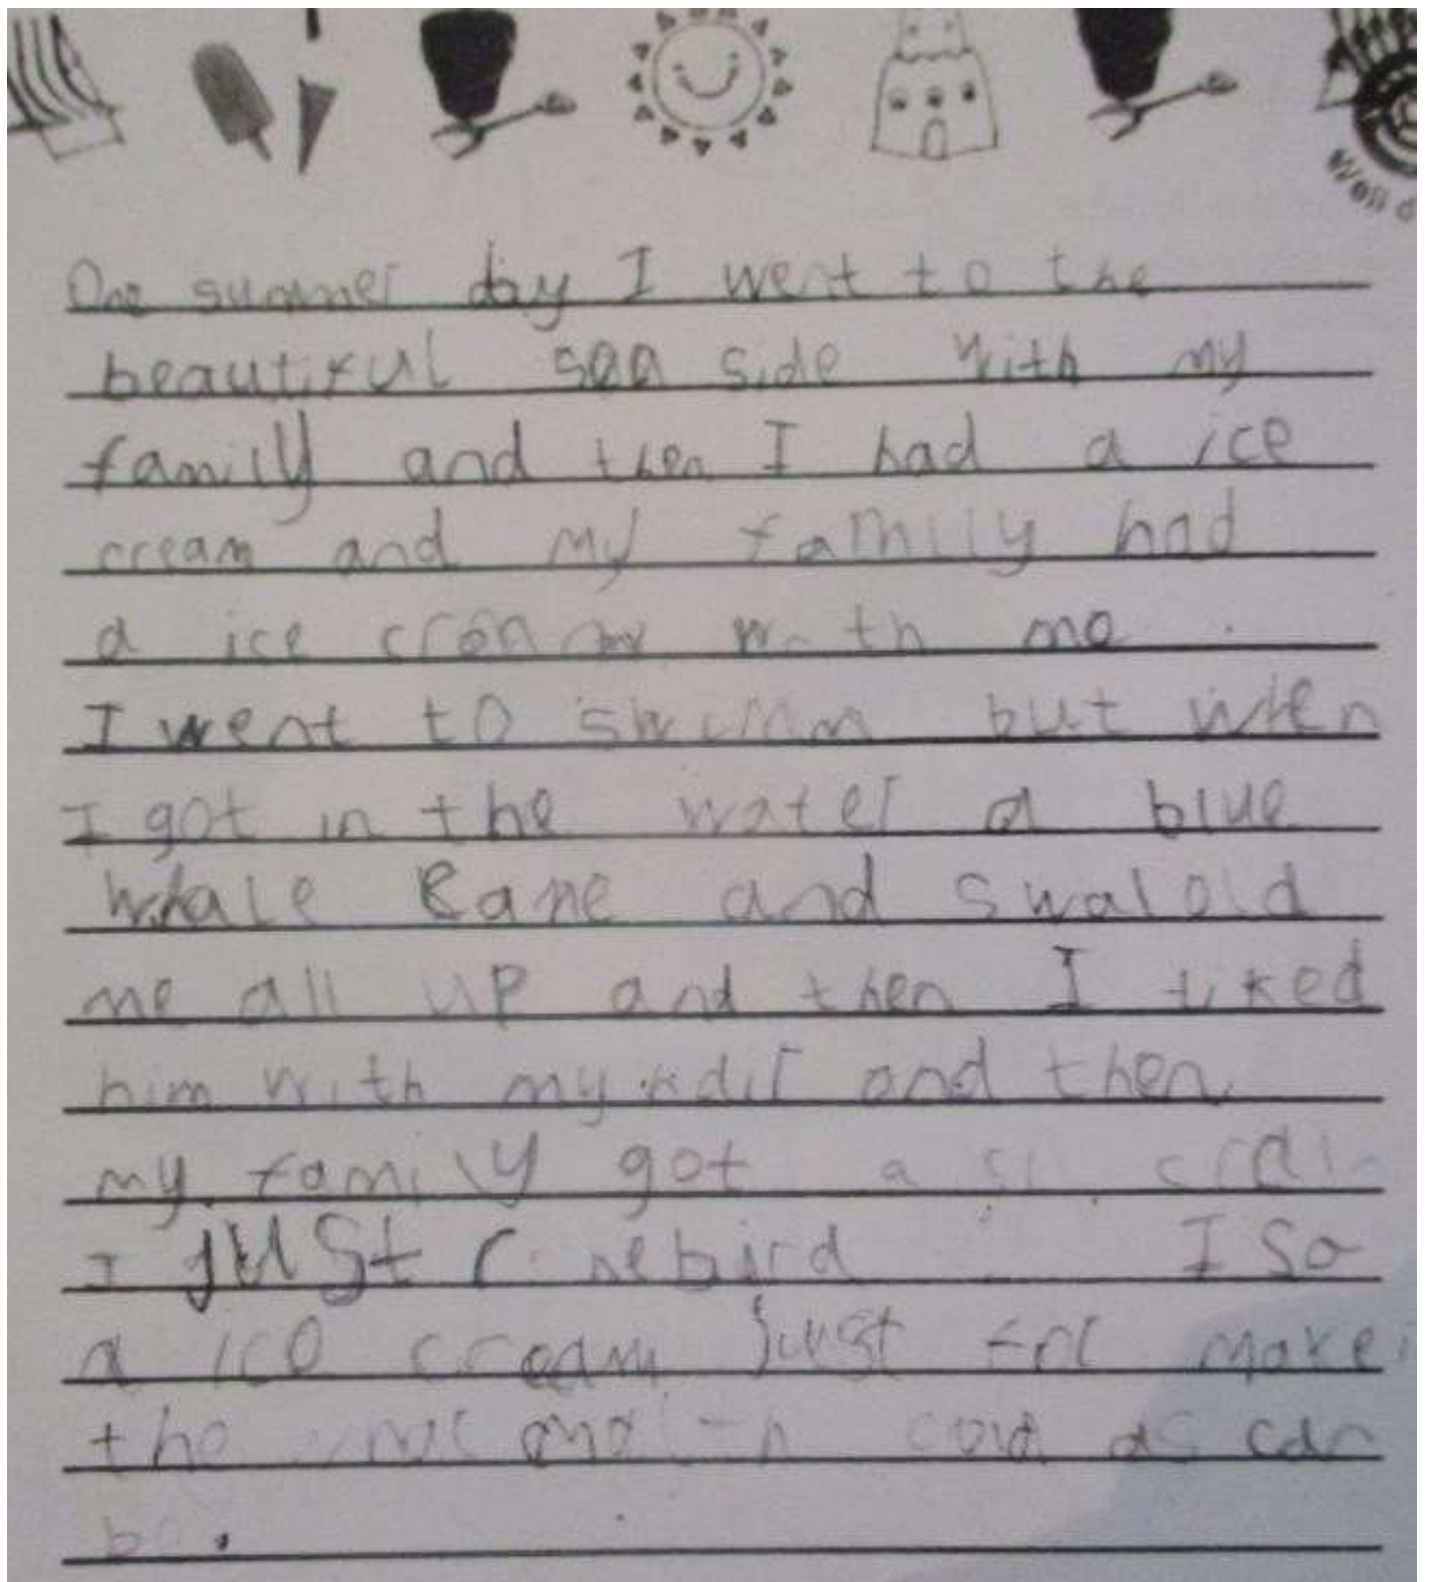 Well d
One summer day I went to the
beautiful sea side with my
family and then I had a ice
cream and my family had
a ice cream with me.
I went to swimm but when
I got in the water a blue
whale came and swalold
me all up and then I
him with my and then
my family got a
I just I so
a ice cream just
the cold as can
be.